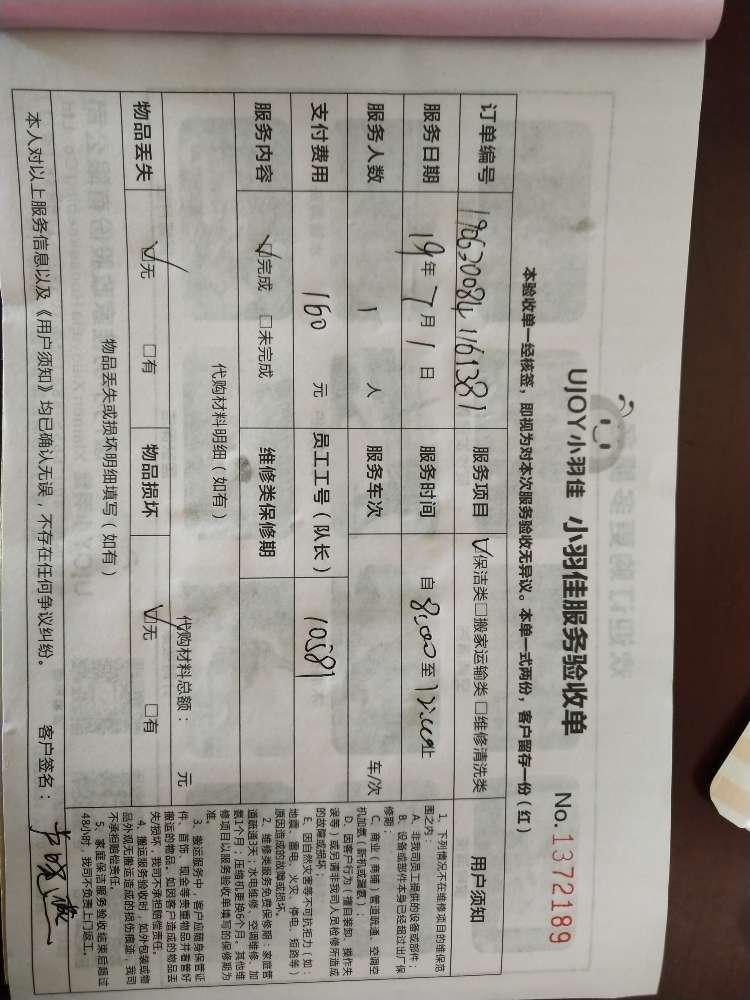 UJOY小羽佳 小羽佳服务验收单 No.1372189
本验收单一经核签，即视为对本次服务验收无异议。本单一式两份，客户留存一份（红）
订单编号 1906300841161381 服务项目 ☑保洁类□搬家运输类□维修清洗类
服务日期 19年7月1日 服务时间 自8:00至12:00止
服务人数 1人 服务车次 车/次
支付费用 160元 员工工号（队长） 10581
服务内容 ☑完成 □未完成 维修类保修期
代购材料明细（如有） 代购材料总额： 元
物品丢失 ☑无 □有 物品损坏 ☑无 □有
物品丢失或损坏明细填写（如有）
本人对以上服务信息以及《用户须知》均已确认无误，不存在任何争议纠纷。 客户签名：
用户须知
1、下列情况不在维修项目的维保范
围之内：
A、非我司员工提供的设备或部件；
B、设备或部件本身已经超过出厂保
修期；
C、商业（商铺）管道疏通、空调空
机加氨（新机或漏氨）；
D、因客户行为（擅自装卸、操作失
误等）或另请非我司人员检修所造成
的故障或损坏；
E、因自然灾害等不可抗拒力（如：
地震、雷电、火灾、停电、短路等）
原因造成的故障或损坏。
2、维修类服务免费保修期：家庭管
道疏通7天；水电维修、空调维修、加
氨1个月；压缩机更换6个月。其他维
修项目以服务验收单填写的保修期为
准。
3、搬运服务中，客户应随身保管证
件、首饰、现金等贵重物品并看管好
搬运的物品，如因客户造成的物品丢
失损坏，我司不承担赔偿责任。
4、搬运服务验收时，如外包装或物
品外观无搬运造成的损伤痕迹，我司
不承担赔偿责任。
5、家庭保洁服务验收结束后超过
48小时，我司不负责上门返工。